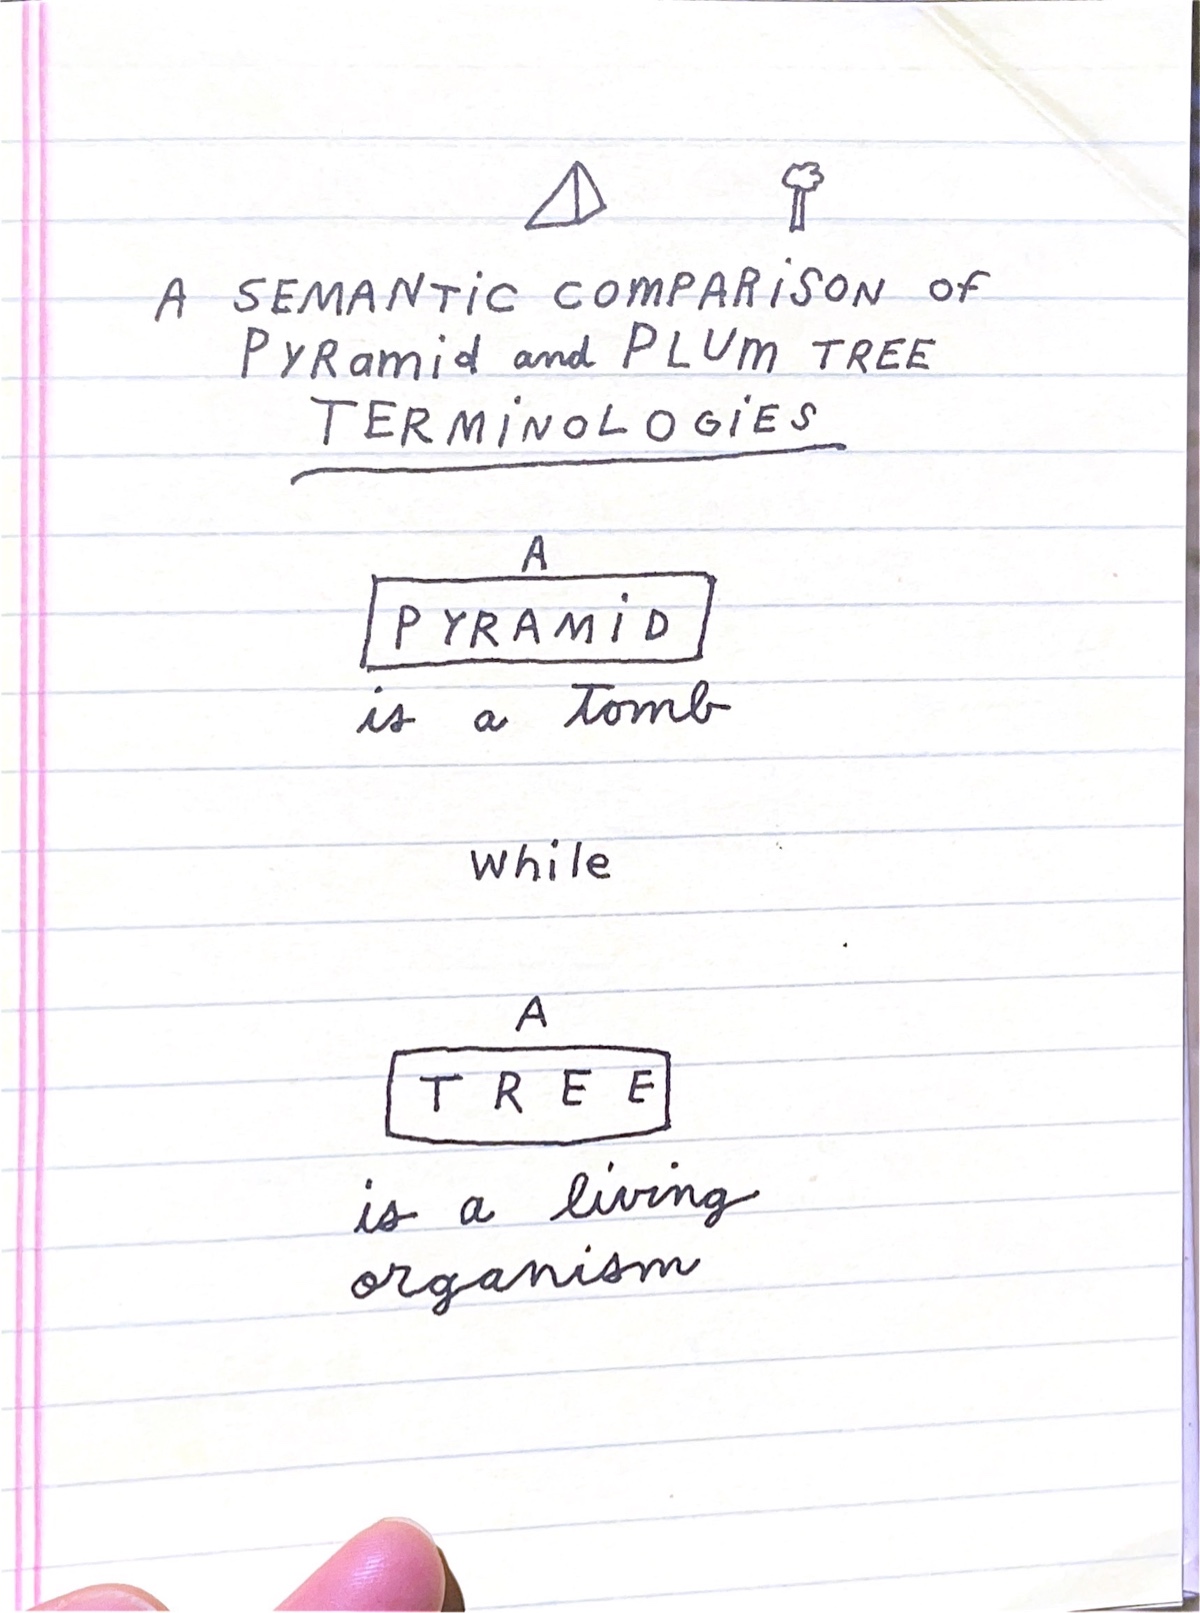 A SEMANTIC COMPARISON of
PYRamid and PLUm TREE
TERMINOLOGIES
A
PYRAMID
is a tomb
while
A
TREE
is a living
organism